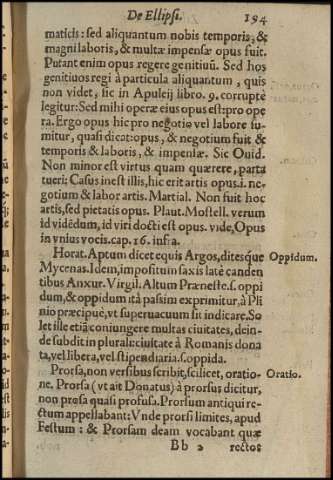 De Ellipsi. 194
maticis: sed aliquantum nobis temporis, &
magni laboris, & multæ impensæ opus fuit.
Putant enim opus regere genitiuũ. Sed hos
genitiuos regi à particula aliquantum, quis
non videt, sic in Apuleij libro. 9. corruptè
legitur: Sed mihi operæ eius opus est: pro ope
ra. Ergo opus hic pro negotio vel labore su-
mitur, quasi dicat: opus, & negotium fuit &
temporis & laboris, & impensæ. Sic Ouid.
Non minor est virtus quam quærere, parta
tueri: Casus inest illis, hic erit artis opus. i. ne-
gotium & labor artis. Martial. Non fuit hoc
artis, sed pietatis opus. Plaut. Mostell. verum
id vidẽdum, id viri docti est opus. vide, Opus
in vnius vocis. cap. 16. infra.
Horat. Aptum dicet equis Argos, ditesque Oppidum.
Mycenas. Idem, impositum saxis late canden
tibus Anxur. Virgil. Altum Præneste. s. oppi
dum, & oppidum ita passim exprimitur, à Pli
nio præcipuè, vt superuacuum sit indicare. So
let ille etiã coniungere multas ciuitates, dein-
de subdit in plurali: ciuitate à Romanis dona
ta, vel libera, vel stipendiaria. s. oppida.
Prorsa, non versibus scribit, scilicet, oratio- Oratio.
ne. Prorsa (vt ait Donatus) à prorsus dicitur,
non prosa quasi profusa. Prorsum antiqui re-
ctum appellabant: Vnde prorsi limites, apud
Festum: & Prorsam deam vocabant quæ
Bb 2 rectos